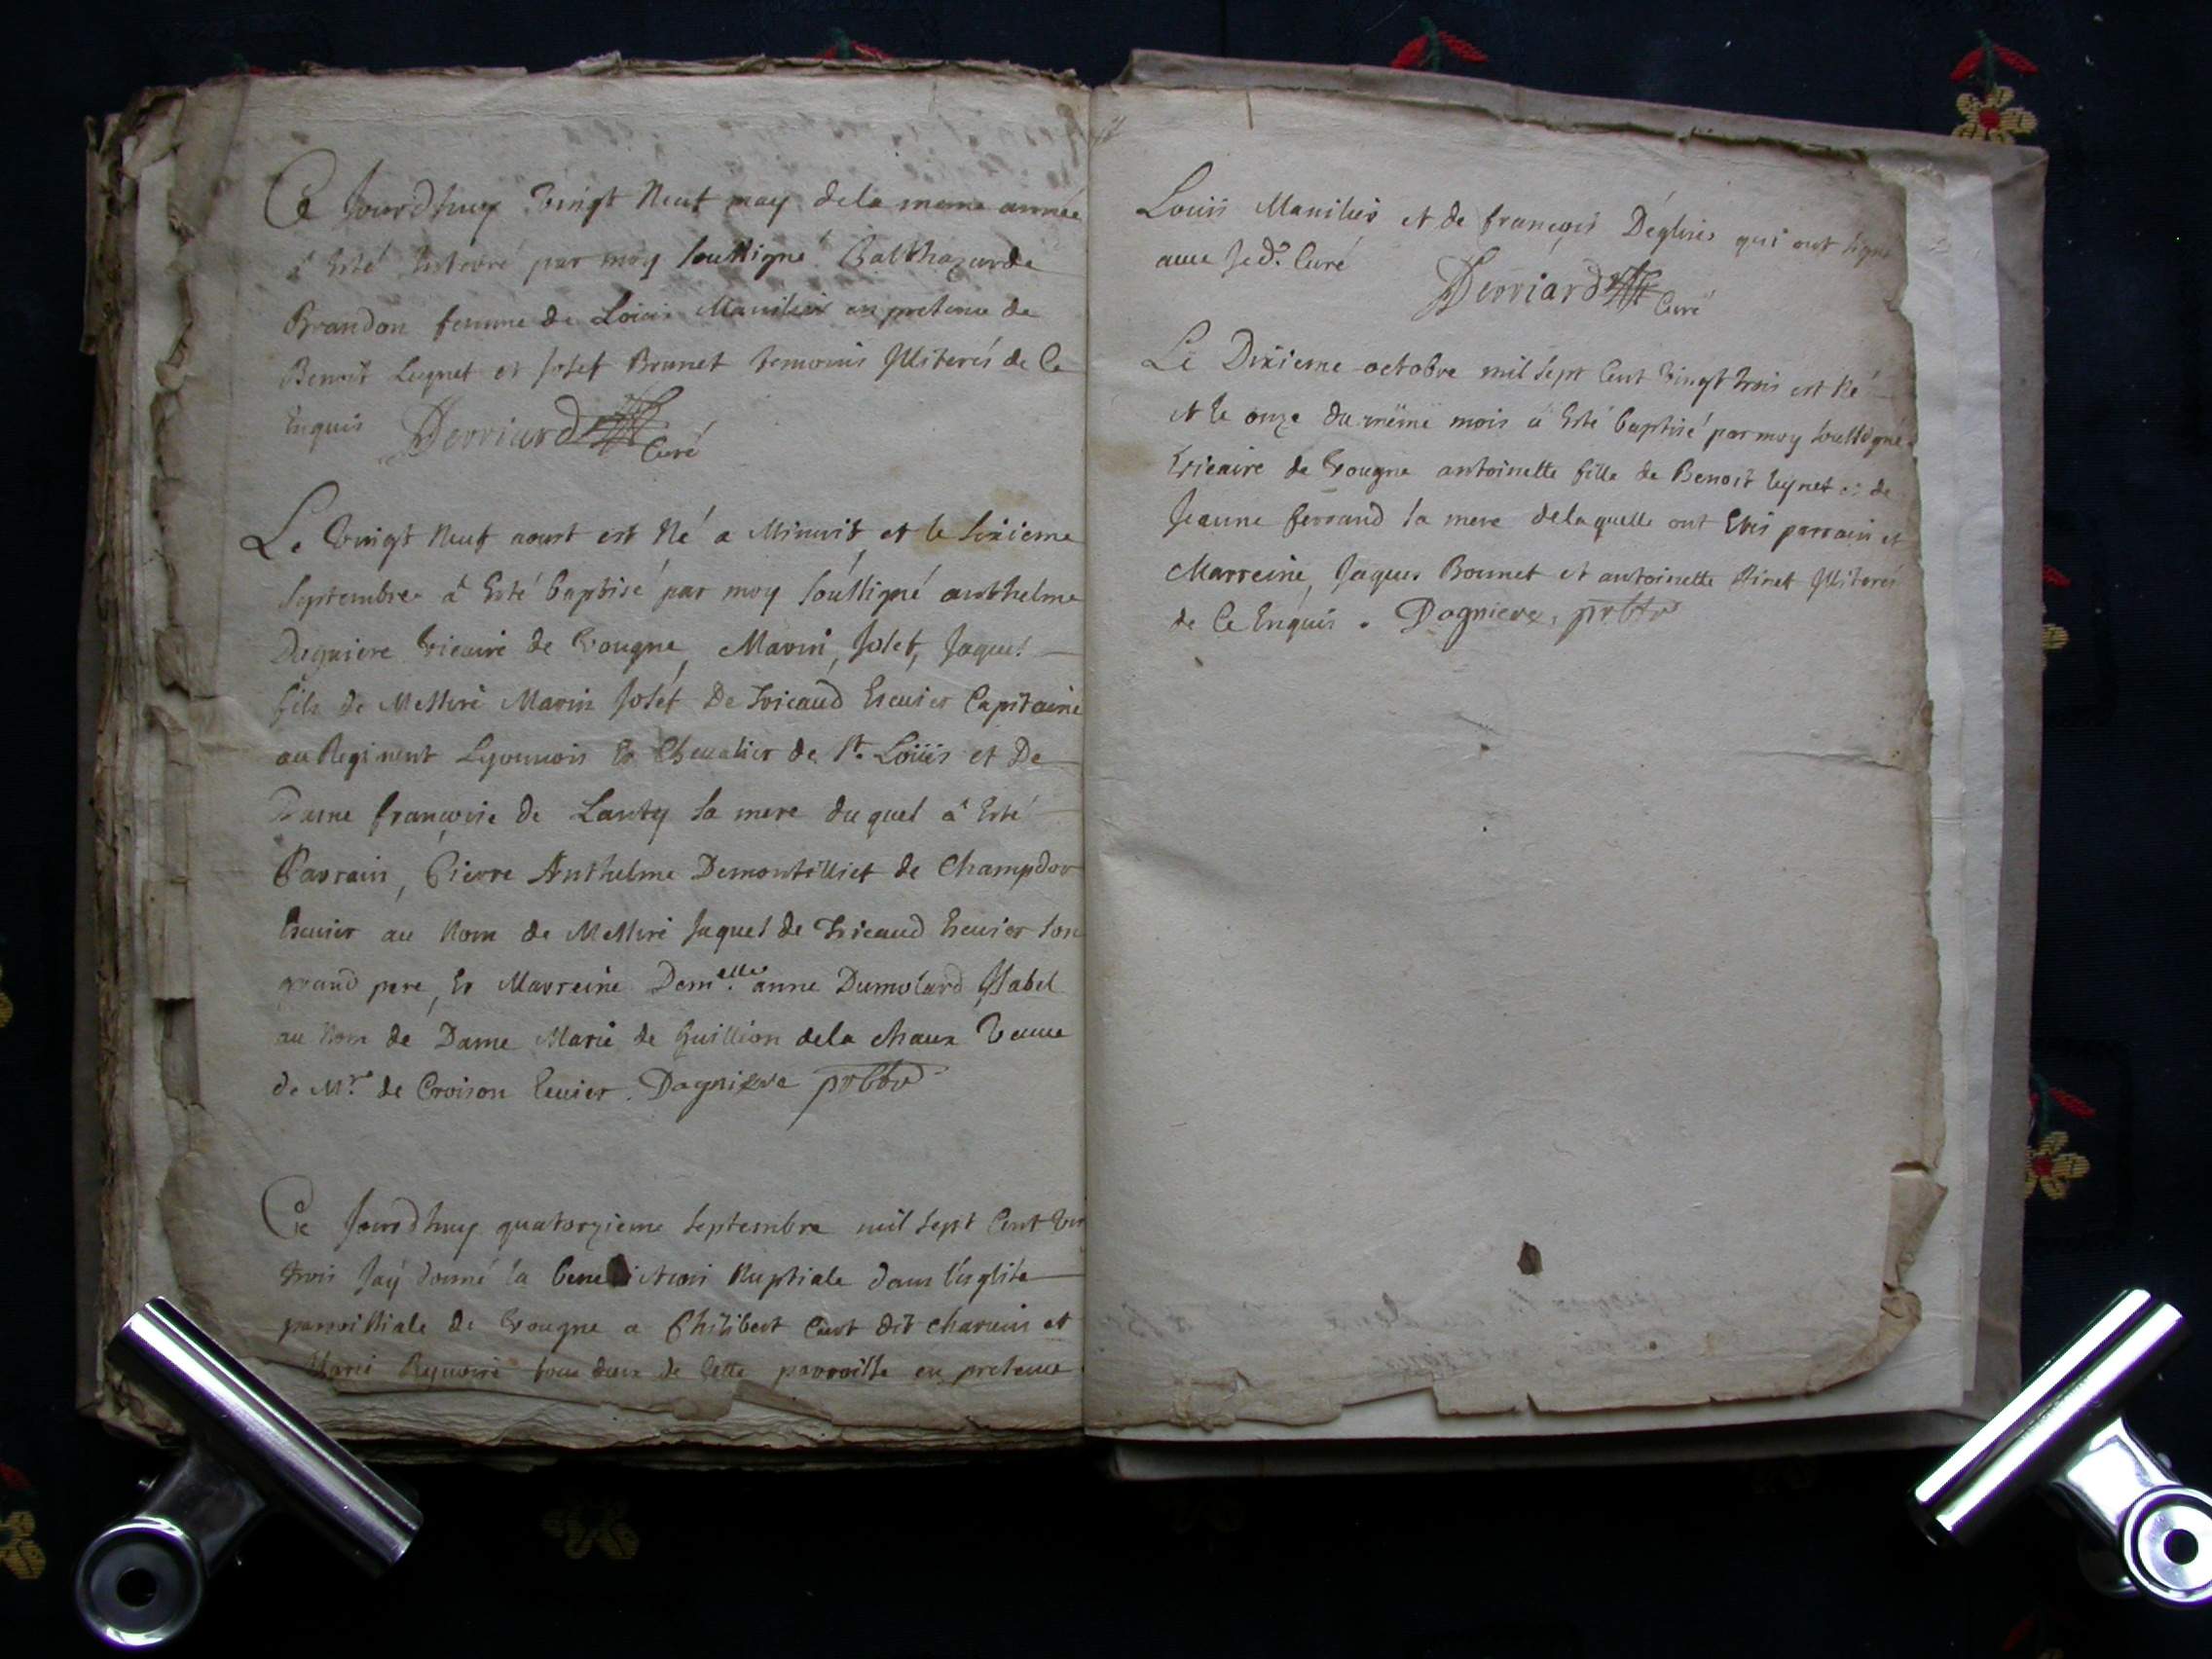 Ce Jourdhuy vingt Neuf may dela meme année
â Esté Enterré par moy soussigné Balthazarde
Brandon femme de Loüis Manilier en pretence de
Benoit Leynet et Josef Brunet temoins Illiterés de Ce
Enquis Derriard Curé
Le vingt Neuf aoust est Né a Minuit et le sixieme
Septembre â Esté baptisé par moy soussigné anthelme
Dagniere vicaire de Vougne, Marin, Josef, Jaques
fils de Messire Marin Josef De Tricaud Escuier Capitaine
au Regiment Lyonnois Et Chevalier de St. Loüis et De
Dame françoise de Lanty sa mere du quel â Esté
Parrain, Pierre Anthelme Demontilliet de Champdor
Escuier au Nom de Messire Jaques de Tricaud Escuier son
grand pere, Et Marreine Demelle. anne Dumolard Isabel
au Nom de Dame Marie de Guillion dela chaux Veuue
de Mr. de Croison Ecuier. Dagniere prbtre
Ce Jourdhuy quatorzieme Septembre mil Sept Cent vin
trois Jaÿ donné la Benediction Nuptiale dans l'esglise
parroissiale de Vougne a Philibert Curt dit charuin et
Marie Reynoire tous deux de Cette parroisse en pretence
Loüis Manilier et de françois Déglises qui ont signé
auec ledt. Curé Derriard Curé
Le Dixieme octobre mil Sept Cent vingt trois est Né
et le onze du même mois â Esté baptisé par moy soussigné
Vicaire de Vougne antoinette fille de Benoit leynet et de
Jeanne ferrand sa mere delaquelle ont Etés parrain et
Marreine, Jaques Bonnet et antoinette Pinet Illiterés
de Ce Enquis. Dagniere, prbtre